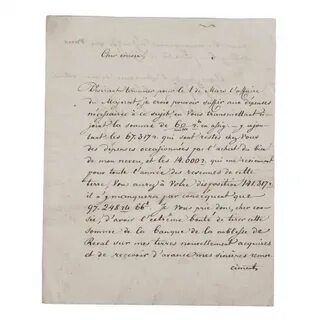 Cher cousin,
Désirant terminer pour le 1 de Mars l'affaire
du Majorat, je crois pouvoir suffire aux dépenses
nécessaires à ce sujet en Vous transmettant ci-
joint la somme de 60 en assig — y ajou-
tant les 67.317 r. qui sont restés chez Vous
des dépenses occasionnées par l'achat du bien
de mon neveu, et les 14.000 r. qui me reviennent
pour toute l'année des revenus de cette
terre, Vous aurez à Votre disposition 141.317 r.
il n'y manquera par conséquent que
97.248 r. 66 c. Je Vous prie donc, cher cou-
sin, d'avoir l'extrême bonté de tirer cette
somme de la banque de la noblesse de
Reval sur mes terres nouvellement acquises
et de recevoir d'avance mes sincères remer-
ciments